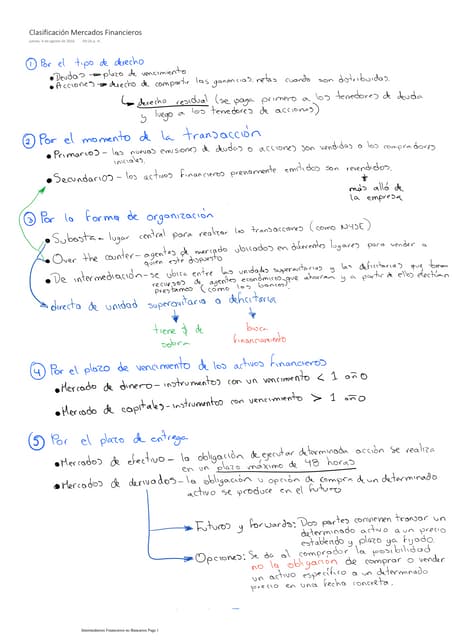 Clasificación Mercados Financieros
① Por el tipo de derecho
• Deudas → plazo de vencimiento
• Acciones → derecho de compartir las ganancias netas cuando son distribuidas.
↳ derecho residual (se paga primero a los tenedores de deuda
y luego a los tenedores de acciones)
② Por el momento de la transacción
• Primarios - las nuevas emisiones de deudas o acciones son vendidas a los compradores
iniciales.
• Secundarios - los activos financieros previamente emitidos son revendidos.
más allá de
la empresa
③ Por la forma de organización
• Subasta - lugar central para realizar las transacciones (como NYSE)
• Over the counter - agentes de mercado ubicados en diferentes lugares para vender a
quien esté dispuesto
• De intermediación - se ubica entre las unidades superavitarias y las deficitarias que toman
recursos de agentes económicos que ahorran y a partir de ellos efectúan
préstamos (como los bancos).
directa de unidad superavitaria a deficitaria
tiene $ de
sobra
busca
financiamiento
④ Por el plazo de vencimiento de los activos financieros
• Mercado de dinero - instrumentos con un vencimiento < 1 año
• Mercado de capitales - instrumentos con vencimiento > 1 año
⑤ Por el plazo de entrega
• Mercados de efectivo - la obligación de ejecutar determinada acción se realiza
en un plazo máximo de 48 horas
• Mercados de derivados - la obligación u opción de compra de un determinado
activo se produce en el futuro
Futuros y forwards: Dos partes convienen transar un
determinado activo a un precio
establecido y plazo ya fijado.
Opciones: Se da al comprador la posibilidad
no la obligación de comprar o vender
un activo específico a un determinado
precio en una fecha concreta.